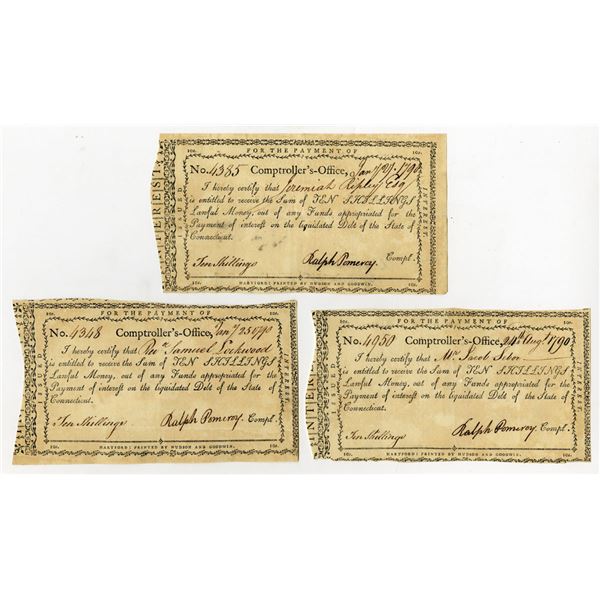 FOR THE PAYMENT OF
10s. 10s.
INTEREST
ISSUED
No. 4385 Comptroller's-Office, Jany 29 1790
I hereby certify that Jeremiah Ripley Esqr
is entitled to receive the Sum of TEN SHILLINGS
Lawful Money, out of any Funds appropriated for the
Payment of interest on the liquidated Debt of the State of
Connecticut.
Ten Shillings Ralph Pomeroy Compt.
INTEREST.
10s. HARTFORD: PRINTED BY HUDSON AND GOODWIN. 10s.
FOR THE PAYMENT OF
10s. 10s.
ISSUED
No. 4348 Comptroller's-Office, Jany 25 1790
I hereby certify that Revd Samuel Lockwood
is entitled to receive the Sum of TEN SHILLINGS
Lawful Money, out of any Funds appropriated for the
Payment of interest on the liquidated Debt of the State of
Connecticut.
Ten Shillings Ralph Pomeroy Compt.
INTEREST.
10s. HARTFORD: PRINTED BY HUDSON AND GOODWIN. 10s.
FOR THE PAYMENT OF
10s. 10s.
INTER
ISSUED
No. 4950 Comptroller's-Office, 24th Augt 1790
I hereby certify that Mr Jacob Sebor
is entitled to receive the Sum of TEN SHILLINGS
Lawful Money, out of any Funds appropriated for the
Payment of interest on the liquidated Debt of the State of
Connecticut.
Ten Shillings Ralph Pomeroy Compt.
INTEREST.
10s. HARTFORD: PRINTED BY HUDSON AND GOODWIN. 10s.